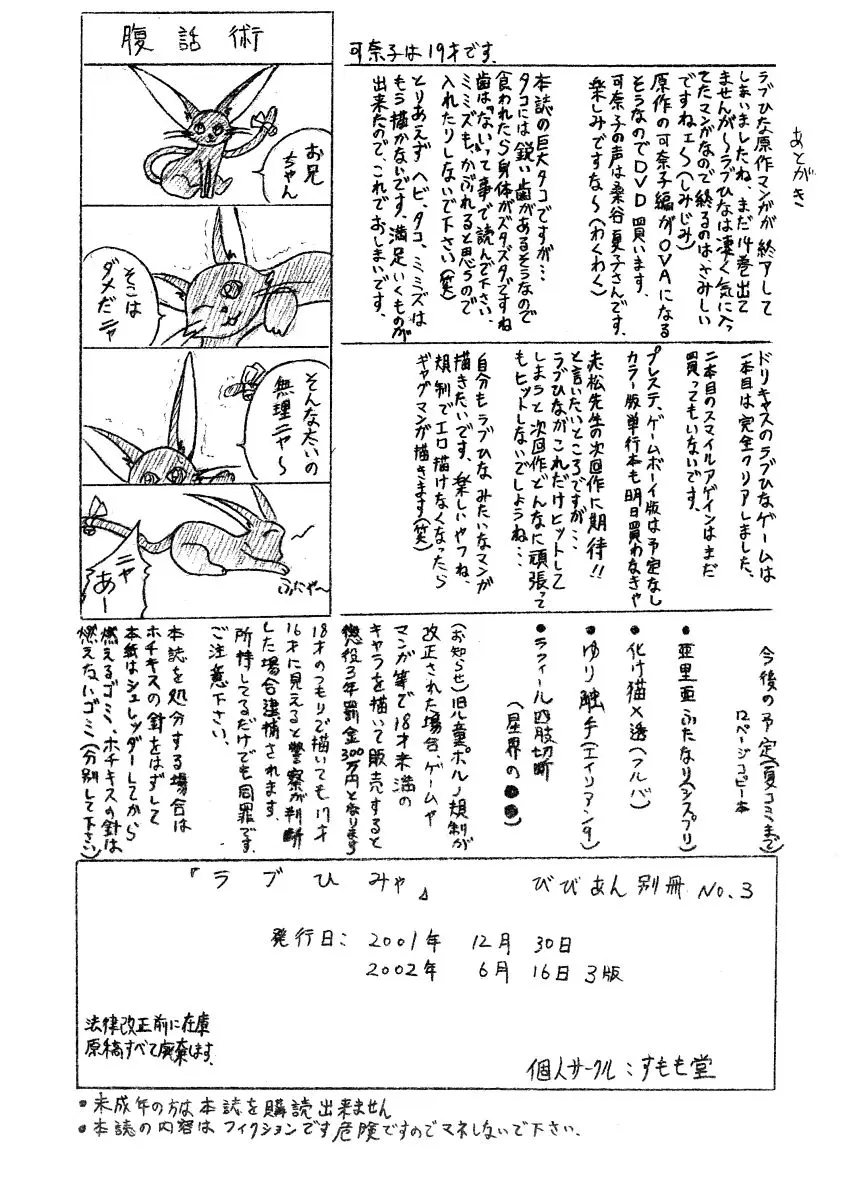 腹話術
お兄
ちゃん
そこは
ダメだニャ
そんな太いの
無理ニャ〜
ニャ
あー
ふにゃ〜
あとがき
ラブひな原作マンガが終アして
しまいましたね、まだ14巻出て
ませんが〜ラブひなは凄く気に入っ
てたマンガなので終るのは、さみしい
ですねェ〜(しみじみ)
原作の可奈子編がOVAになる
そうなのでDVD買います。
可奈子の声は桑谷夏子さんです。
楽しみですな〜(わくわく)
本誌の巨大タコですが…
タコには鋭い歯があるそうなので
食われたら身体がズタズタですね
歯は「ない」って事で読んで下さい、
ミミズも、かぶれると思うので
入れたりしないで下さい(笑)
とりあえずヘビ、タコ、ミミズは
もう描かないです。満足いくものが
出来たので、これでおしまいです。
可奈子は19才です。
ドリキャスのラブひなゲームは
一本目は完全クリアしました、
二本目のスマイルアゲインはまだ
買ってもいないです。
プレステ、ゲームボーイ版は予定なし
カラー版単行本も明日買わなきゃ
赤松先生の次回作に期待!!
と言いたいところですが…
ラブひながこれだけヒットして
しまうと次回作どんなに頑張って
もヒットしないでしょうね…
自分もラブひなみたいなマンガ
描きたいです、楽しいやつね、
規制でエロ描けなくなったら
ギャグマンガ描きます(笑)
今後の予定(夏コミまで)
12ページコピー本
●亜里亜ふたなり(シスプリ)
●化け猫×透(フルバ)
●ゆり触手(エイリアン9)
●ラフィール四肢切断
(星界の●●)
(お知らせ)児童ポルノ規制が
改正された場合、ゲームや
マンガ等で18才未満の
キャラを描いて販売すると
懲役3年罰金300万円となります
18才のつもりで描いても17才
16才に見えると警察が判断
した場合逮捕されます。
所持してるだけでも同罪です、
ご注意下さい。
本誌を処分する場合は
ホチキスの針をはずして
本紙はシュレッダーしてから
燃えるゴミ、ホチキスの針は
燃えないゴミ(分別して下さい)
『ラブひみゃ』 びびあん別冊 No.3
発行日: 2001年 12月 30日
2002年 6月 16日 3版
法律改正前に在庫
原稿すべて廃棄します。
個人サークル:すもも堂
●未成年の方は本誌を購読出来ません
●本誌の内容はフィクションです危険ですのでマネしないで下さい、